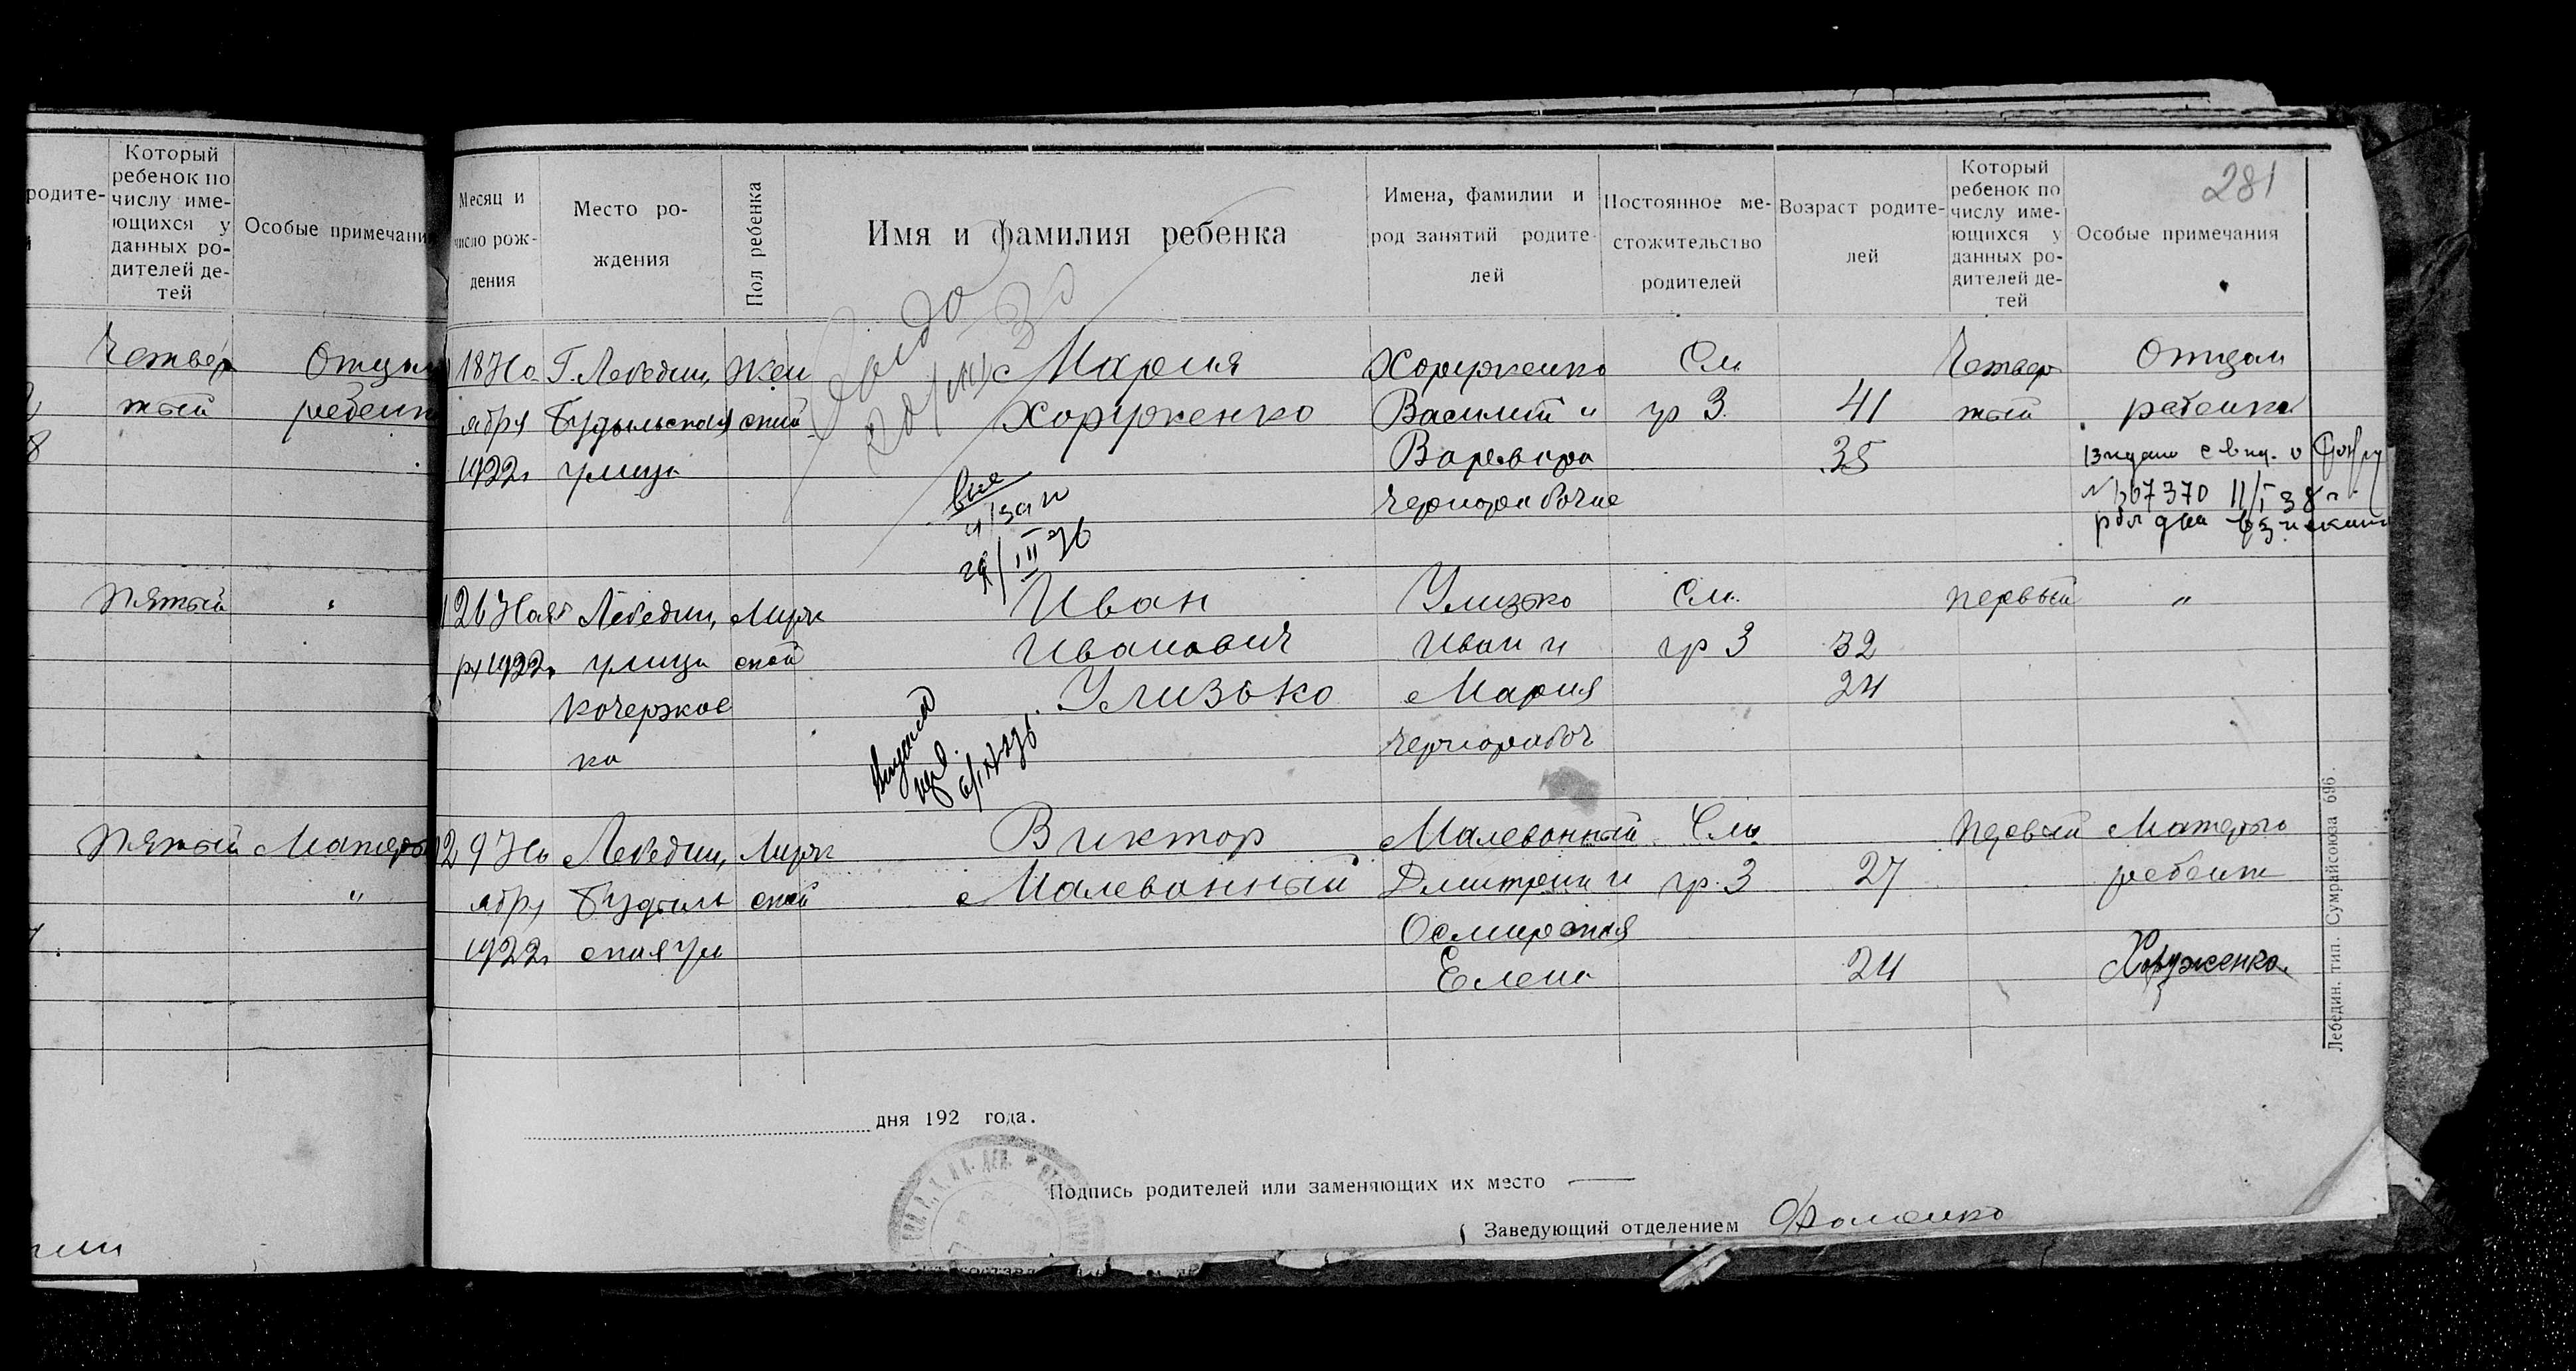 родите-
Который
ребенок по
числу име-
ющихся у
данных ро-
дителей де-
тей
Особые примечани
Четвер
тый
Отцом
ребенк
8
Пятый
"
Пятый
Матерью
"
Месяц и
число рож-
дения
Место ро-
ждения
Пол ребенка
Имя и фамилия ребенка
Имена, фамилии и
род занятий родите-
лей
Постоянное ме-
стожительство
родителей
Возраст родите-
лей
Который
ребенок по
числу име-
ющихся у
данных ро-
дителей де-
тей
Особые примечания
281
18 Но
ября
1922г
Г. Лебедин,
Будыльская
улица
Жен
ский
Мария
Хоруженко
Хоруженко
Василий и
Варвара
Чернорабочие
См.
гр 3.
41
35
Четвер
тый
Отцом
ребенка
№ 367370 11/I 38 г.
26 Нояб
ря 1922г.
Лебедин,
улица
Кочержков
ка
Мужс
ской
Иван
Иванович
Улизько
Улизько
Иван и
Мария
Чернорабоч
См.
гр 3
32
24
первый
"
29 Но
ября
1922г
Лебедин,
Будыль
ская ул
Мужс
ской
Виктор
Малеванный
Малеванный
Дмитрий и
Елена
См.
гр. 3
27
24
первый
Матерью
ребенк
Хоруженко
дня 192 года.
Подпись родителей или заменяющих их место
Заведующий отделением Фоменко
Лебедин. тип. Сумрайсоюза 696.